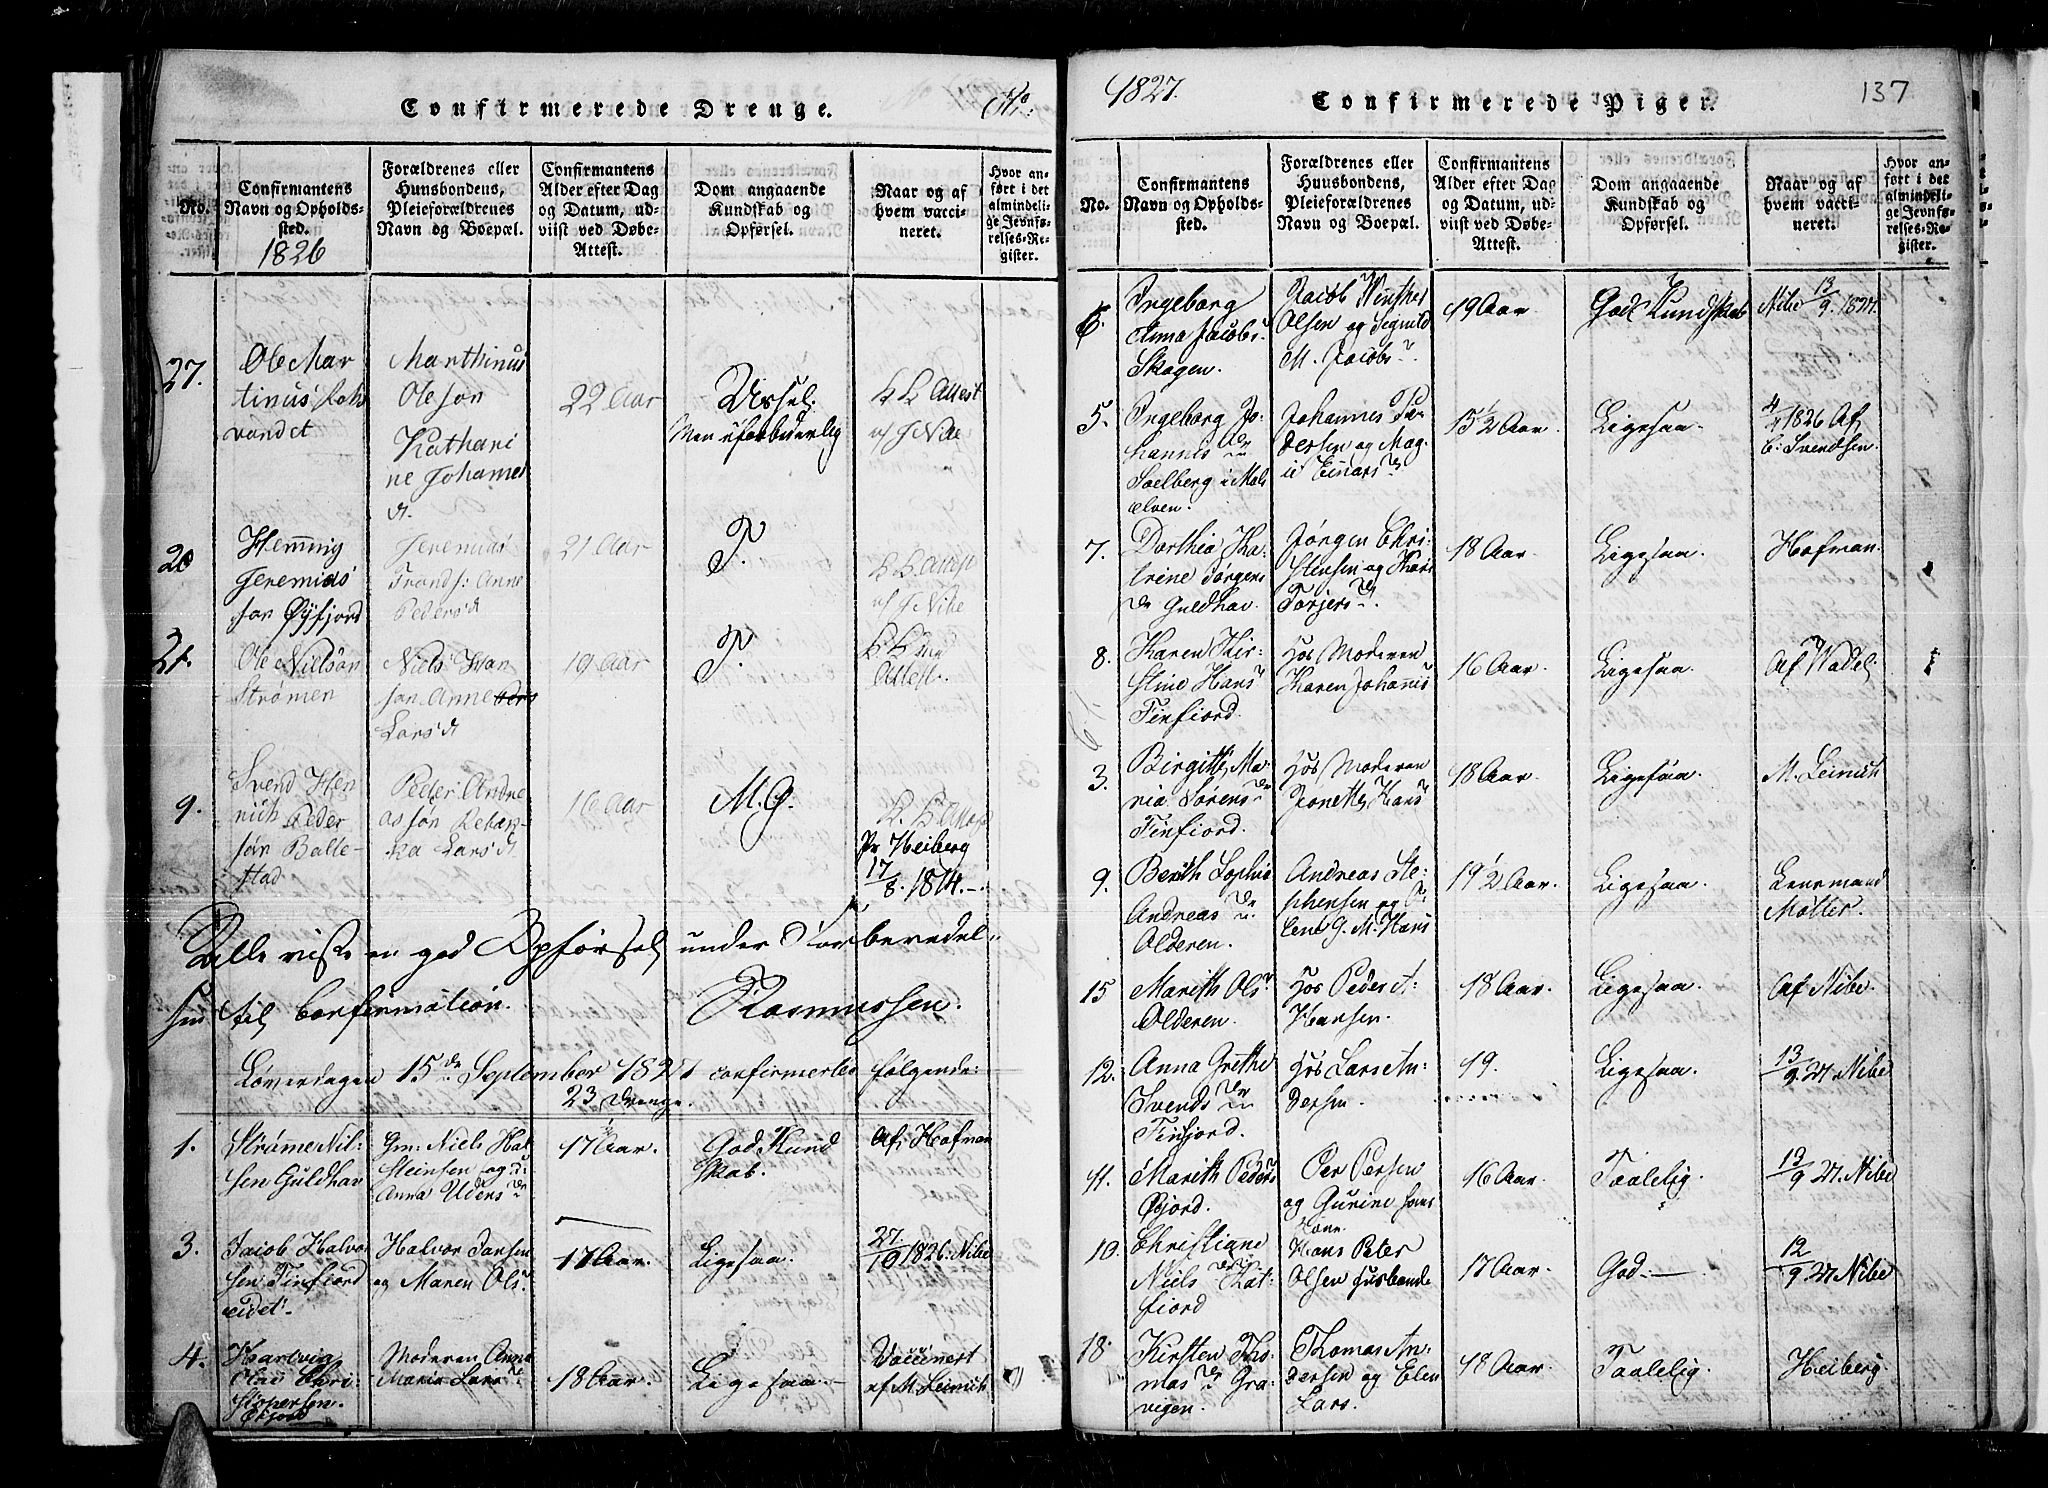 Confirmerede Drenge.
No.
Confirmantens
Navn og Opholds-
sted.
1826
Forældrenes eller
Huusbondens,
Pleieforældrenes
Navn og Boepæl.
Confirmantens
Alder efter Dag
og Datum, ud-
viist ved Døbe-
Attest.
Dom angaaende
Kundskab og
Opførsel.
Naar og af
hvem vacci-
neret.
Hvor an-
ført i det
almindeli-
ge Jevnfø-
relses-Re-
gister.
27.
Ole Mar
tinus
vandet
Marthinus
Olesøn
Kathari
ne Johannes
d.
22 Aar
Ussel.
Men uforbederlig
Attest
af Nibe
20
Hemmig
Jeremias
søn Øyfjord
Jeremias
Trands: Anne
Pedersd
21 Aar
T.
Attest
af Nibe
21.
Ole Nielsøn
Strømen
Niels Ivar
søn Anne
Larsd
19 Aar
T.
Attest.
9.
Svend Hen
rich Peder
søn Balle-
stad
Peder Andre
assøn Rebek-
ka Larsd
16 Aar
M. G.
Pr Heiberg
17/8. 1814.
Alle viste en god Opførsel under Forberedel-
sen til Confirmation. Rasmussen.
Løverdagen 15de September 1827 confirmertes følgende:
23 Drenge.
1.
Strøme Nil-
sen Guldhav
Gm: Niels Hal
steinsen og
Anna Udensdr
17 1/2 Aar.
God Kund
skab.
Af Hofman
3.
Jacob Halvor
sen Finfiord
eidet.
Halvor Jansen
og Maren Ols.
17 Aar.
Ligesaa.
27/10 1826. Nibe
4.
Hartvig
Olai Chri-
stophersen.
Øijord
Moderen Anne
Maria Larsdr
18 Aar.
Ligesaa
Vaccinert
af M. Leinich
1827.
Confirmerede Piger.
137
No.
Confirmantens
Navn og Opholds-
sted.
Forældrenes eller
Huusbondens,
Pleieforældrenes
Navn og Boepæl.
Confirmantens
Alder efter Dag
og Datum, ud-
viist ved Døbe-
Attest.
Dom angaaende
Kundskab og
Opførsel.
Naar og af
hvem vacci-
neret.
Hvor an-
ført i det
almindeli-
ge Jevnfø-
relses-Re-
gister.
6.
Ingeborg
Anna Jacobs
Skogen.
Jacob Winther
Olsen og Segnild
M. Jacobs
19 Aar
God Kundskab
Nibe 13/9. 1827.
5.
Ingeborg Jo-
hannis
Soelberg i Mals
elven.
Johannes Pe-
dersen og Mag-
li Einars
15 1/2 Aar.
Ligesaa.
4/7 1826 Af
C: Svendsen.
7.
Dorthea Ka-
trine Jørgens
dr Guldhav.
Jørgen Chri-
stensen og Kari
Torjers
18 Aar.
Ligesaa.
Hofman.
8.
Karen Kir-
stine Hans
Finfiord.
Hos Moderen
Karen Johannis
16 Aar.
Ligesaa.
Af Wadel.
3.
Birgitte Ma-
ria Sørens
Finfiord.
Hos Moderen
Jonette Hans
18 Aar.
Ligesaa.
M. Leinich
9.
Berith Sophia
Andreas
Olderen.
Andreas Ste-
phensen og
Lene G. M. Hans
19 1/2 Aar.
Ligesaa.
Lensmand
Møller.
15
Marith Ols
Olderen.
Hos Peder A.
Hansen.
18 Aar.
Ligesaa.
Af Nibe.
12.
Anna Grethe
Svends
Finfjord.
Hos Lars An-
dersen.
19.
Ligesaa.
13/9. 27 Nibe
11.
Marith Peders
Øijord.
Per Persen
og Gurine hans
Kone.
16 Aar.
Taalelig.
13/9 27. Nibe
10.
Christiane
Niels Kat-
fiord
Hans Peter
Olsen Husbonde
17 Aar.
God.
12/9 27 Nibe
18.
Kirsten Tho-
mas Gra-
vigen.
Thomas An-
dersen og Elen
Lars.
18 Aar.
Taalelig.
Heiberg.